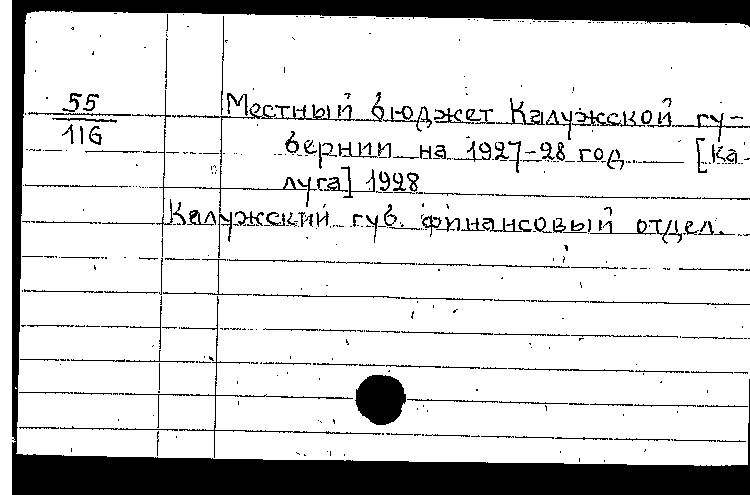 55
116
Местный бюджет Калужской гу-
бернии на 1927-28 год [Ка-
луга] 1928
Калужский губ. финансовый отдел.